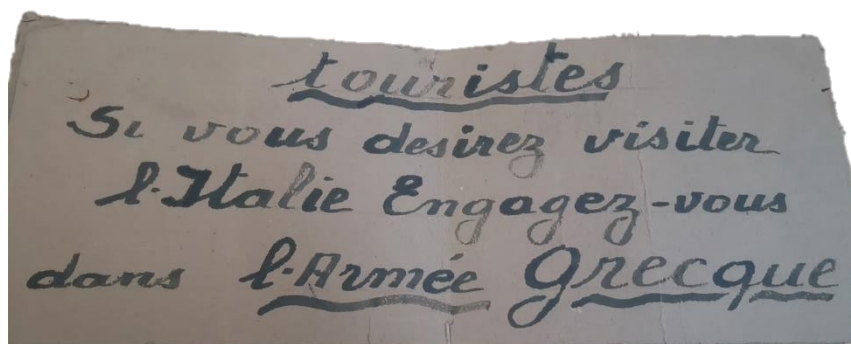 touristes
Si vous desirez visiter
l'Italie Engagez-vous
dans l'Armée Grecque